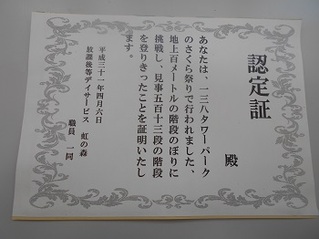 認定証
殿
あなたは、一三八タワーパーク
のさくら祭りで行われました、
地上百メートルの階段のぼりに
挑戦し、見事五百十三段の階段
を登りきったことを証明いたし
ます。
平成三十一年四月六日
放課後等デイサービス 虹の森
職員 一同